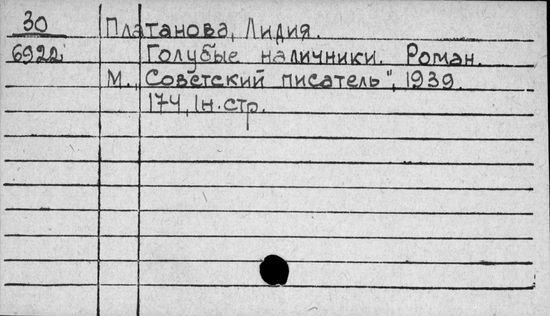 30 Платанова, Лидия.
6922 Голубые наличники. Роман.
М., Советский писатель", 1939.
174, 1н.стр.